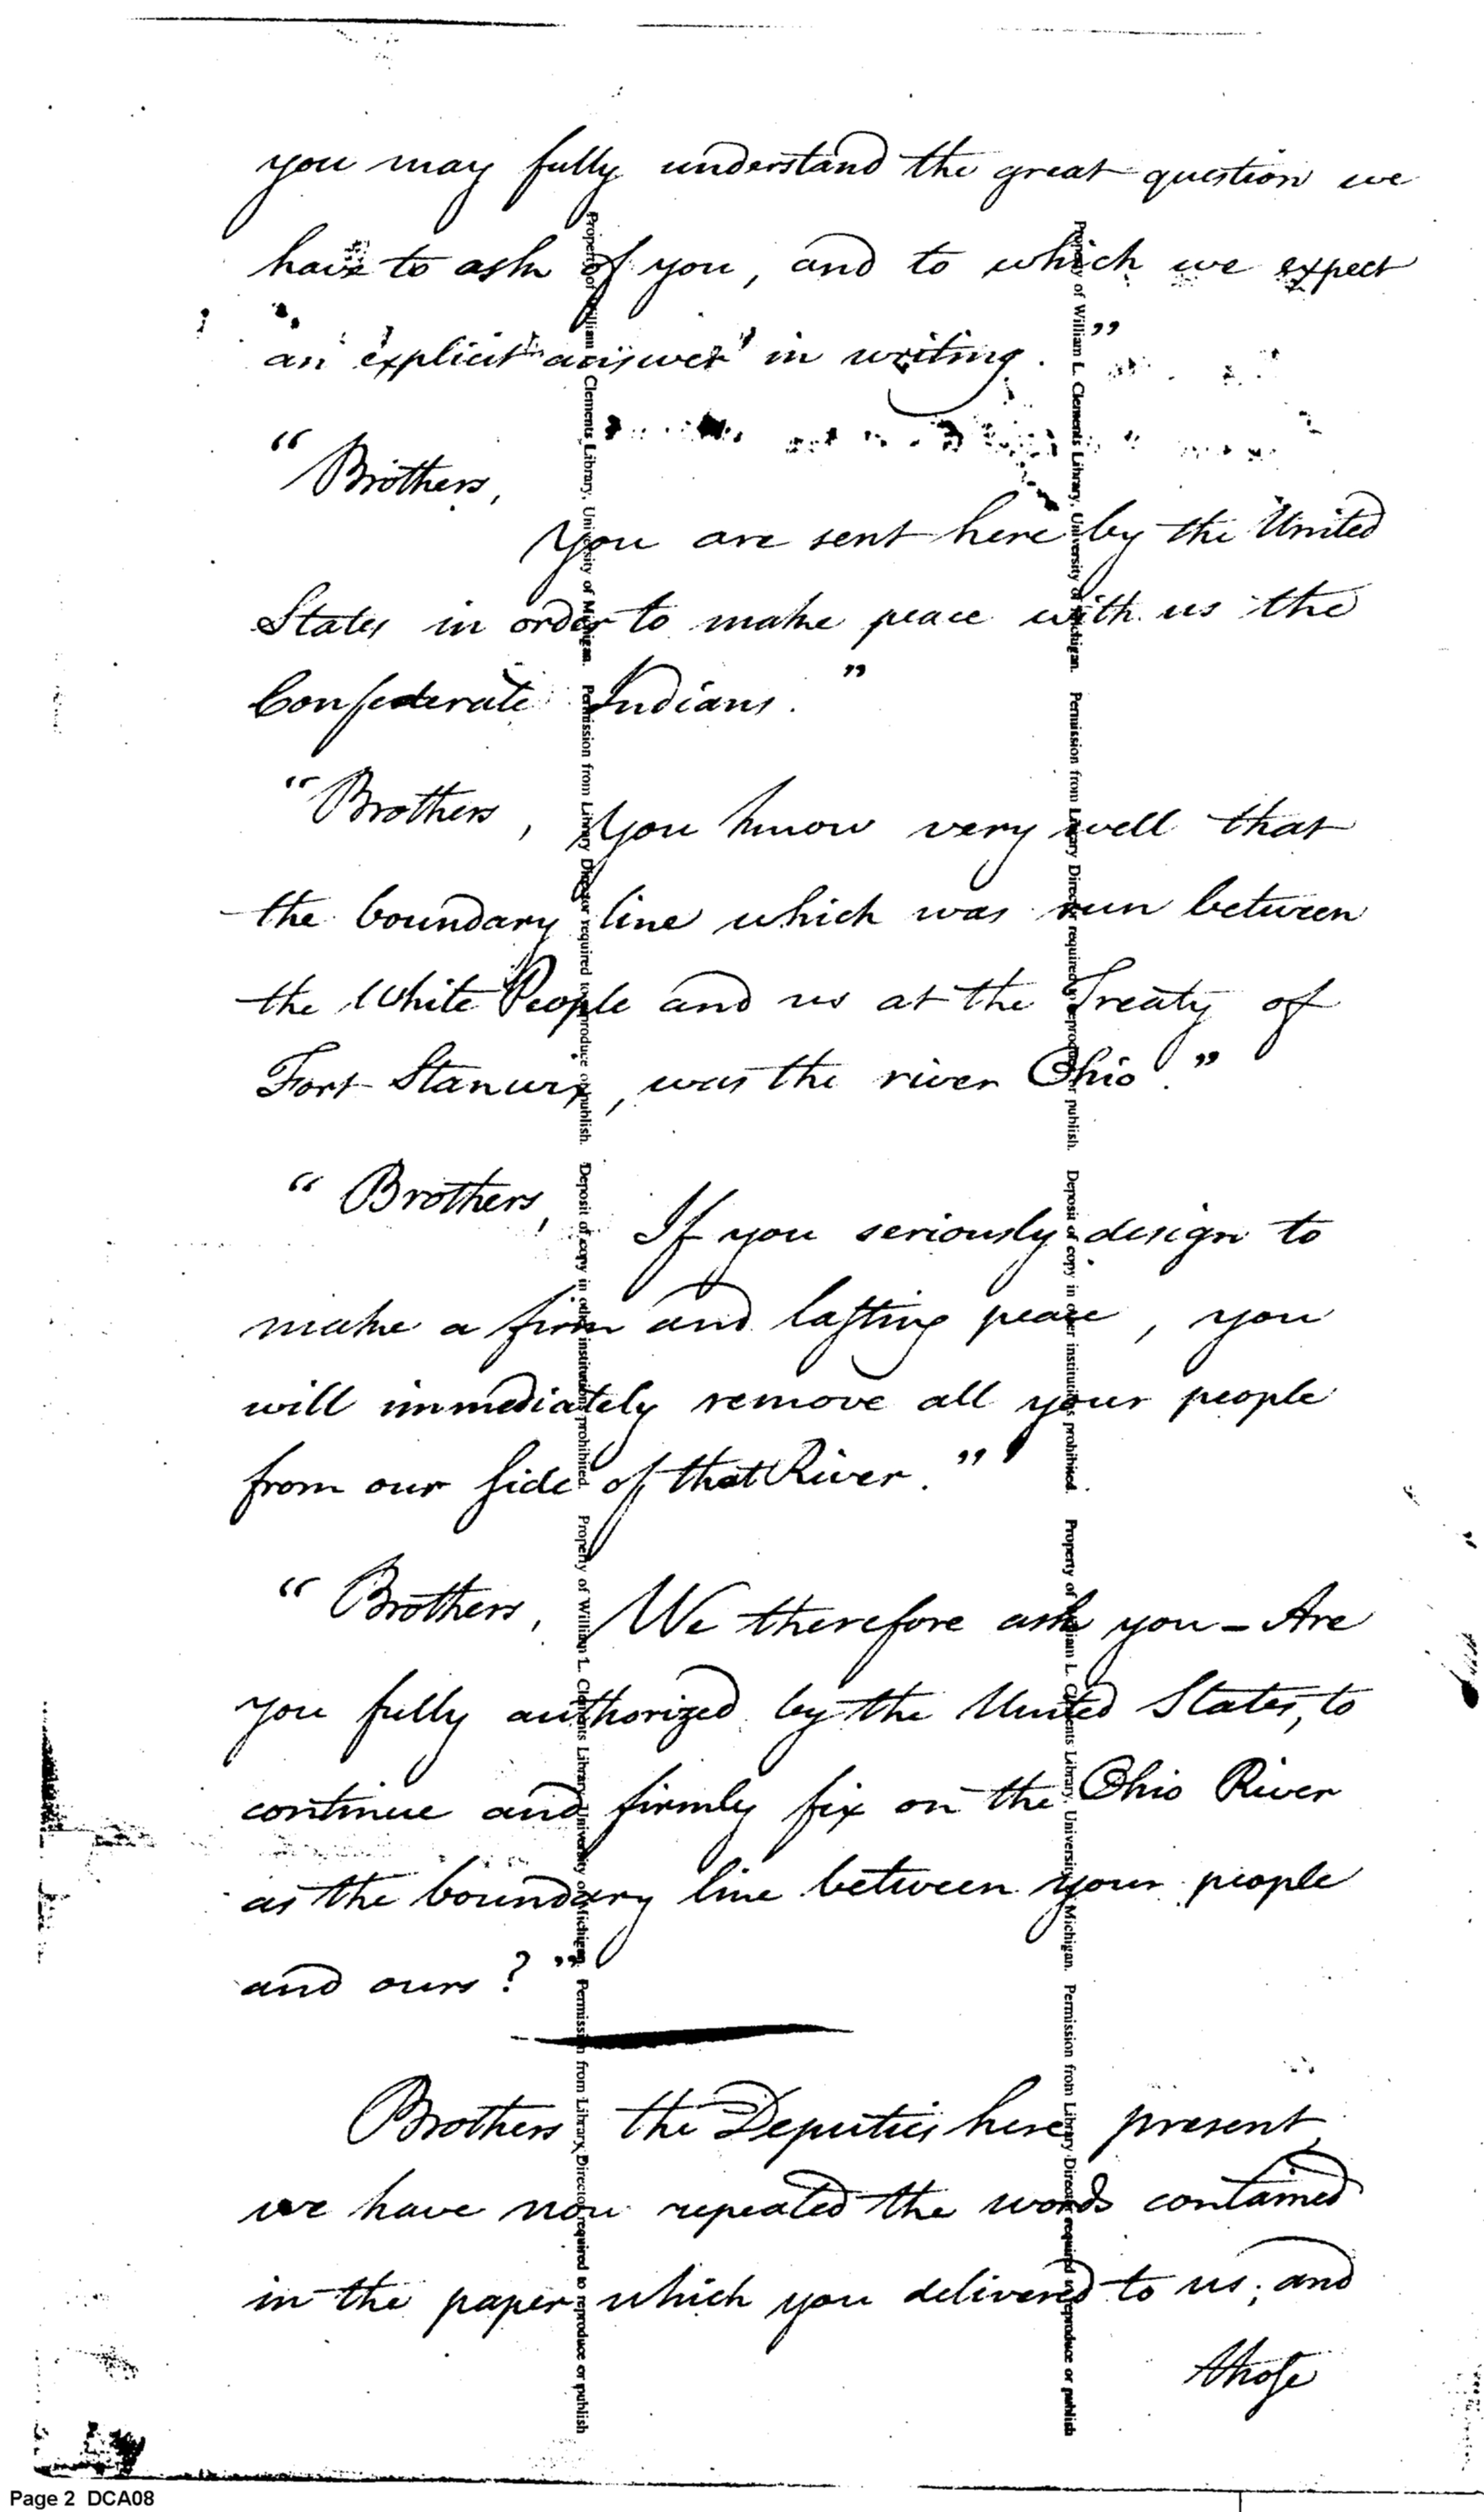 you may fully understand the great question we
have to ask of you, and to which we expect
an explicit answer in writing."
"Brothers,
You are sent here by the United
States in order to make peace with us the
Confederate Indians."
"Brothers, You know very well that
the boundary line which was run between
the White People and us at the Treaty of
Fort Stanwix, was the river Ohio."
"Brothers, If you seriously design to
make a firm and lasting peace, you
will immediately remove all your people
from our side of that River."
"Brothers, We therefore ask you – Are
you fully authorized by the United States, to
continue and firmly fix on the Ohio River
as the boundary line between your people
and ours?"
Brothers the Deputies here present,
we have now repeated the words contained
in the paper which you delivered to us; and
those
Property of William L. Clements Library, University of Michigan. Permission from Library Director required to reproduce or publish. Deposit of copy in other institutions prohibited. Property of William L. Clements Library, University of Michigan. Permission from Library Director required to reproduce or publish
Property of William L. Clements Library, University of Michigan. Permission from Library Director required to reproduce or publish. Deposit of copy in other institutions prohibited. Property of William L. Clements Library, University of Michigan. Permission from Library Director required to reproduce or publish
Page 2 DCA08